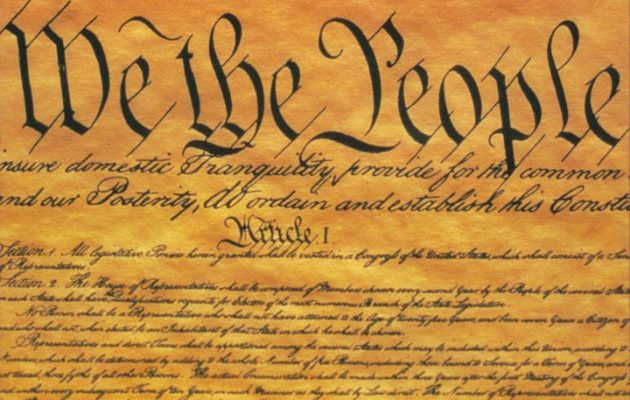 We the People
insure domestic Tranquility, provide for the common
nd our Posterity, do ordain and establish this Constit
Article I
Section 1. All legislative Powers herein granted shall be vested in a Congress of the United States, which shall consist of a Sen
of Representatives.
Section 2. The House of Representatives shall be composed of Members chosen every second Year by the People of the several Stat
in each State shall have Qualifications requisite for Electors of the most numerous Branch of the State Legislature.
No Person shall be a Representative who shall not have attained to the Age of twenty five Years, and been seven Years a Citizen of
and who shall not, when elected, be an Inhabitant of that State in which he shall be chosen.
Representatives and direct Taxes shall be apportioned among the several States which may be included within this Union, according to
Numbers, which shall be determined by adding to the whole Number of free Persons, including those bound to Service for a Term of Years, and
not taxed, three fifths of all other Persons. The actual Enumeration shall be made within three Years after the first Meeting of the Congress of
and within every subsequent Term of ten Years, in such Manner as they shall by Law direct. The Number of Representatives shall not